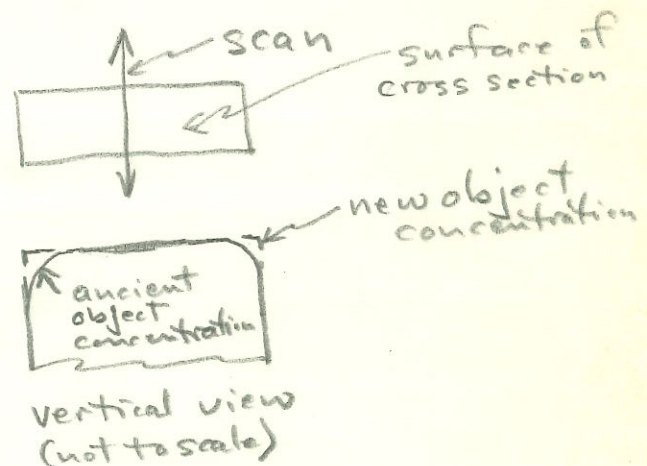 scan
surface of
cross section
new object
concentration
ancient
object
concentration
vertical view
(not to scale)